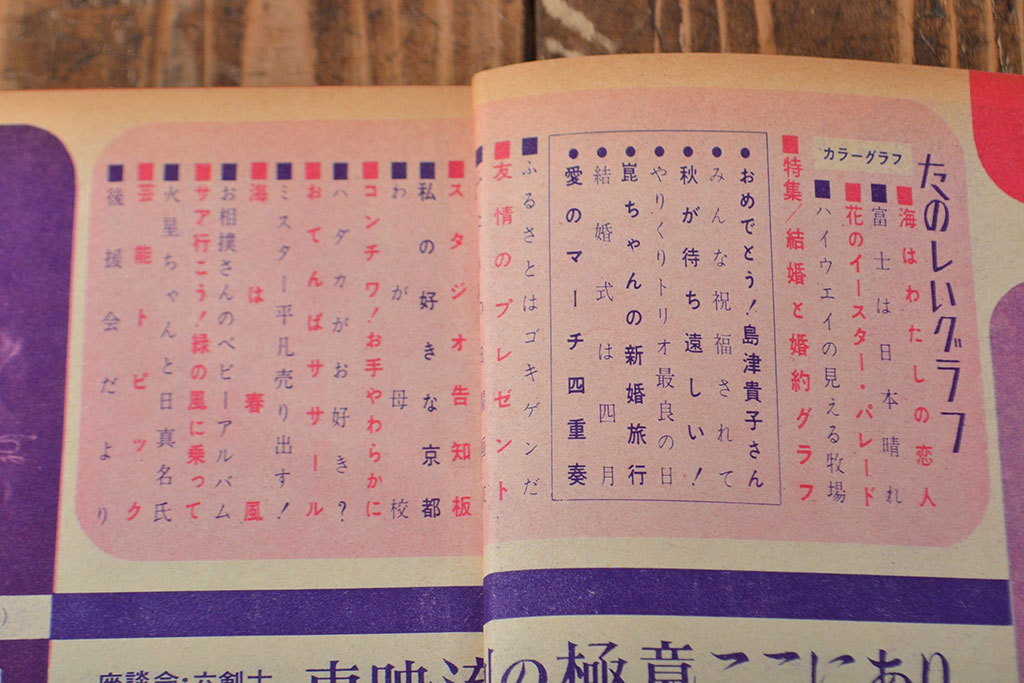 たのしいグラフ
カラーグラフ
海はわたしの恋人
富士は日本晴れ
花のイースター・パレード
ハイウエイの見える牧場
特集/結婚と婚約グラフ
おめでとう!島津貴子さん
みんな祝福されて
秋が待ち遠しい!
やりくりトリオ最良の日
崑ちゃんの新婚旅行
結婚式は四月
愛のマーチ四重奏
ふるさとはゴキゲンだ
友情のプレゼント
スタジオ告知板
私の好きな京都
わが母校
コンチワ!お手やわらかに
ハダカがお好き?
おてんばササール
ミスター平凡売り出す!
海は春風
お相撲さんのベビーアルバム
サア行こう!緑の風に乗って
火星ちゃんと日真名氏
芸能トピック
後援会だより
座談会・六剣士
東映流の極意ここにあり